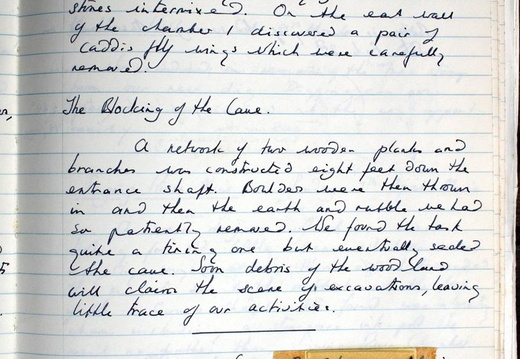 stones intermixed. On the east wall
of the chamber I discovered a pair of
caddis fly wings which were carefully
removed.
The Blocking of the Cave.
A network of two wooden planks and
branches was constructed eight feet down the
entrance shaft. Boulders were then thrown
in and then the earth and rubble we had
so patiently removed. We found the task
quite a tiring one but eventually sealed
the cave. Soon debris of the woodland
will claim the scene of excavations, leaving
little trace of our activities.